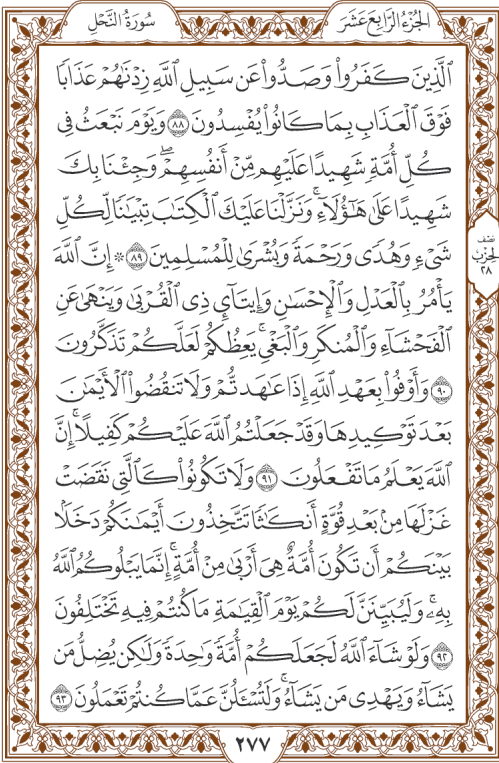 سُورَةُ النَّحْلِ
الجُزْءُ الرَّابِعَ عَشَرَ
ٱلَّذِينَ كَفَرُواْ وَصَدُّواْ عَن سَبِيلِ ٱللَّهِ زِدْنَٰهُمْ عَذَابًا
فَوْقَ ٱلْعَذَابِ بِمَا كَانُواْ يُفْسِدُونَ ٨٨ وَيَوْمَ نَبْعَثُ فِى
كُلِّ أُمَّةٍ شَهِيدًا عَلَيْهِم مِّنْ أَنفُسِهِمْۖ وَجِئْنَا بِكَ
شَهِيدًا عَلَىٰ هَٰٓؤُلَآءِۚ وَنَزَّلْنَا عَلَيْكَ ٱلْكِتَٰبَ تِبْيَٰنًا لِّكُلِّ
شَىْءٍ وَهُدًى وَرَحْمَةً وَبُشْرَىٰ لِلْمُسْلِمِينَ ٨٩ ۞ إِنَّ ٱللَّهَ
يَأْمُرُ بِٱلْعَدْلِ وَٱلْإِحْسَٰنِ وَإِيتَآئِ ذِى ٱلْقُرْبَىٰ وَيَنْهَىٰ عَنِ
ٱلْفَحْشَآءِ وَٱلْمُنكَرِ وَٱلْبَغْىِۚ يَعِظُكُمْ لَعَلَّكُمْ تَذَكَّرُونَ
٩٠ وَأَوْفُواْ بِعَهْدِ ٱللَّهِ إِذَا عَٰهَدتُّمْ وَلَا تَنقُضُواْ ٱلْأَيْمَٰنَ
بَعْدَ تَوْكِيدِهَا وَقَدْ جَعَلْتُمُ ٱللَّهَ عَلَيْكُمْ كَفِيلًاۚ إِنَّ
ٱللَّهَ يَعْلَمُ مَا تَفْعَلُونَ ٩١ وَلَا تَكُونُواْ كَٱلَّتِى نَقَضَتْ
غَزْلَهَا مِنۢ بَعْدِ قُوَّةٍ أَنكَٰثًا تَتَّخِذُونَ أَيْمَٰنَكُمْ دَخَلًۢا
بَيْنَكُمْ أَن تَكُونَ أُمَّةٌ هِىَ أَرْبَىٰ مِنْ أُمَّةٍۚ إِنَّمَا يَبْلُوكُمُ ٱللَّهُ
بِهِۦۚ وَلَيُبَيِّنَنَّ لَكُمْ يَوْمَ ٱلْقِيَٰمَةِ مَا كُنتُمْ فِيهِ تَخْتَلِفُونَ
٩٢ وَلَوْ شَآءَ ٱللَّهُ لَجَعَلَكُمْ أُمَّةً وَٰحِدَةً وَلَٰكِن يُضِلُّ مَن
يَشَآءُ وَيَهْدِى مَن يَشَآءُۚ وَلَتُسْـَٔلُنَّ عَمَّا كُنتُمْ تَعْمَلُونَ ٩٣
نصف
الحزب
٢٨
٢٧٧